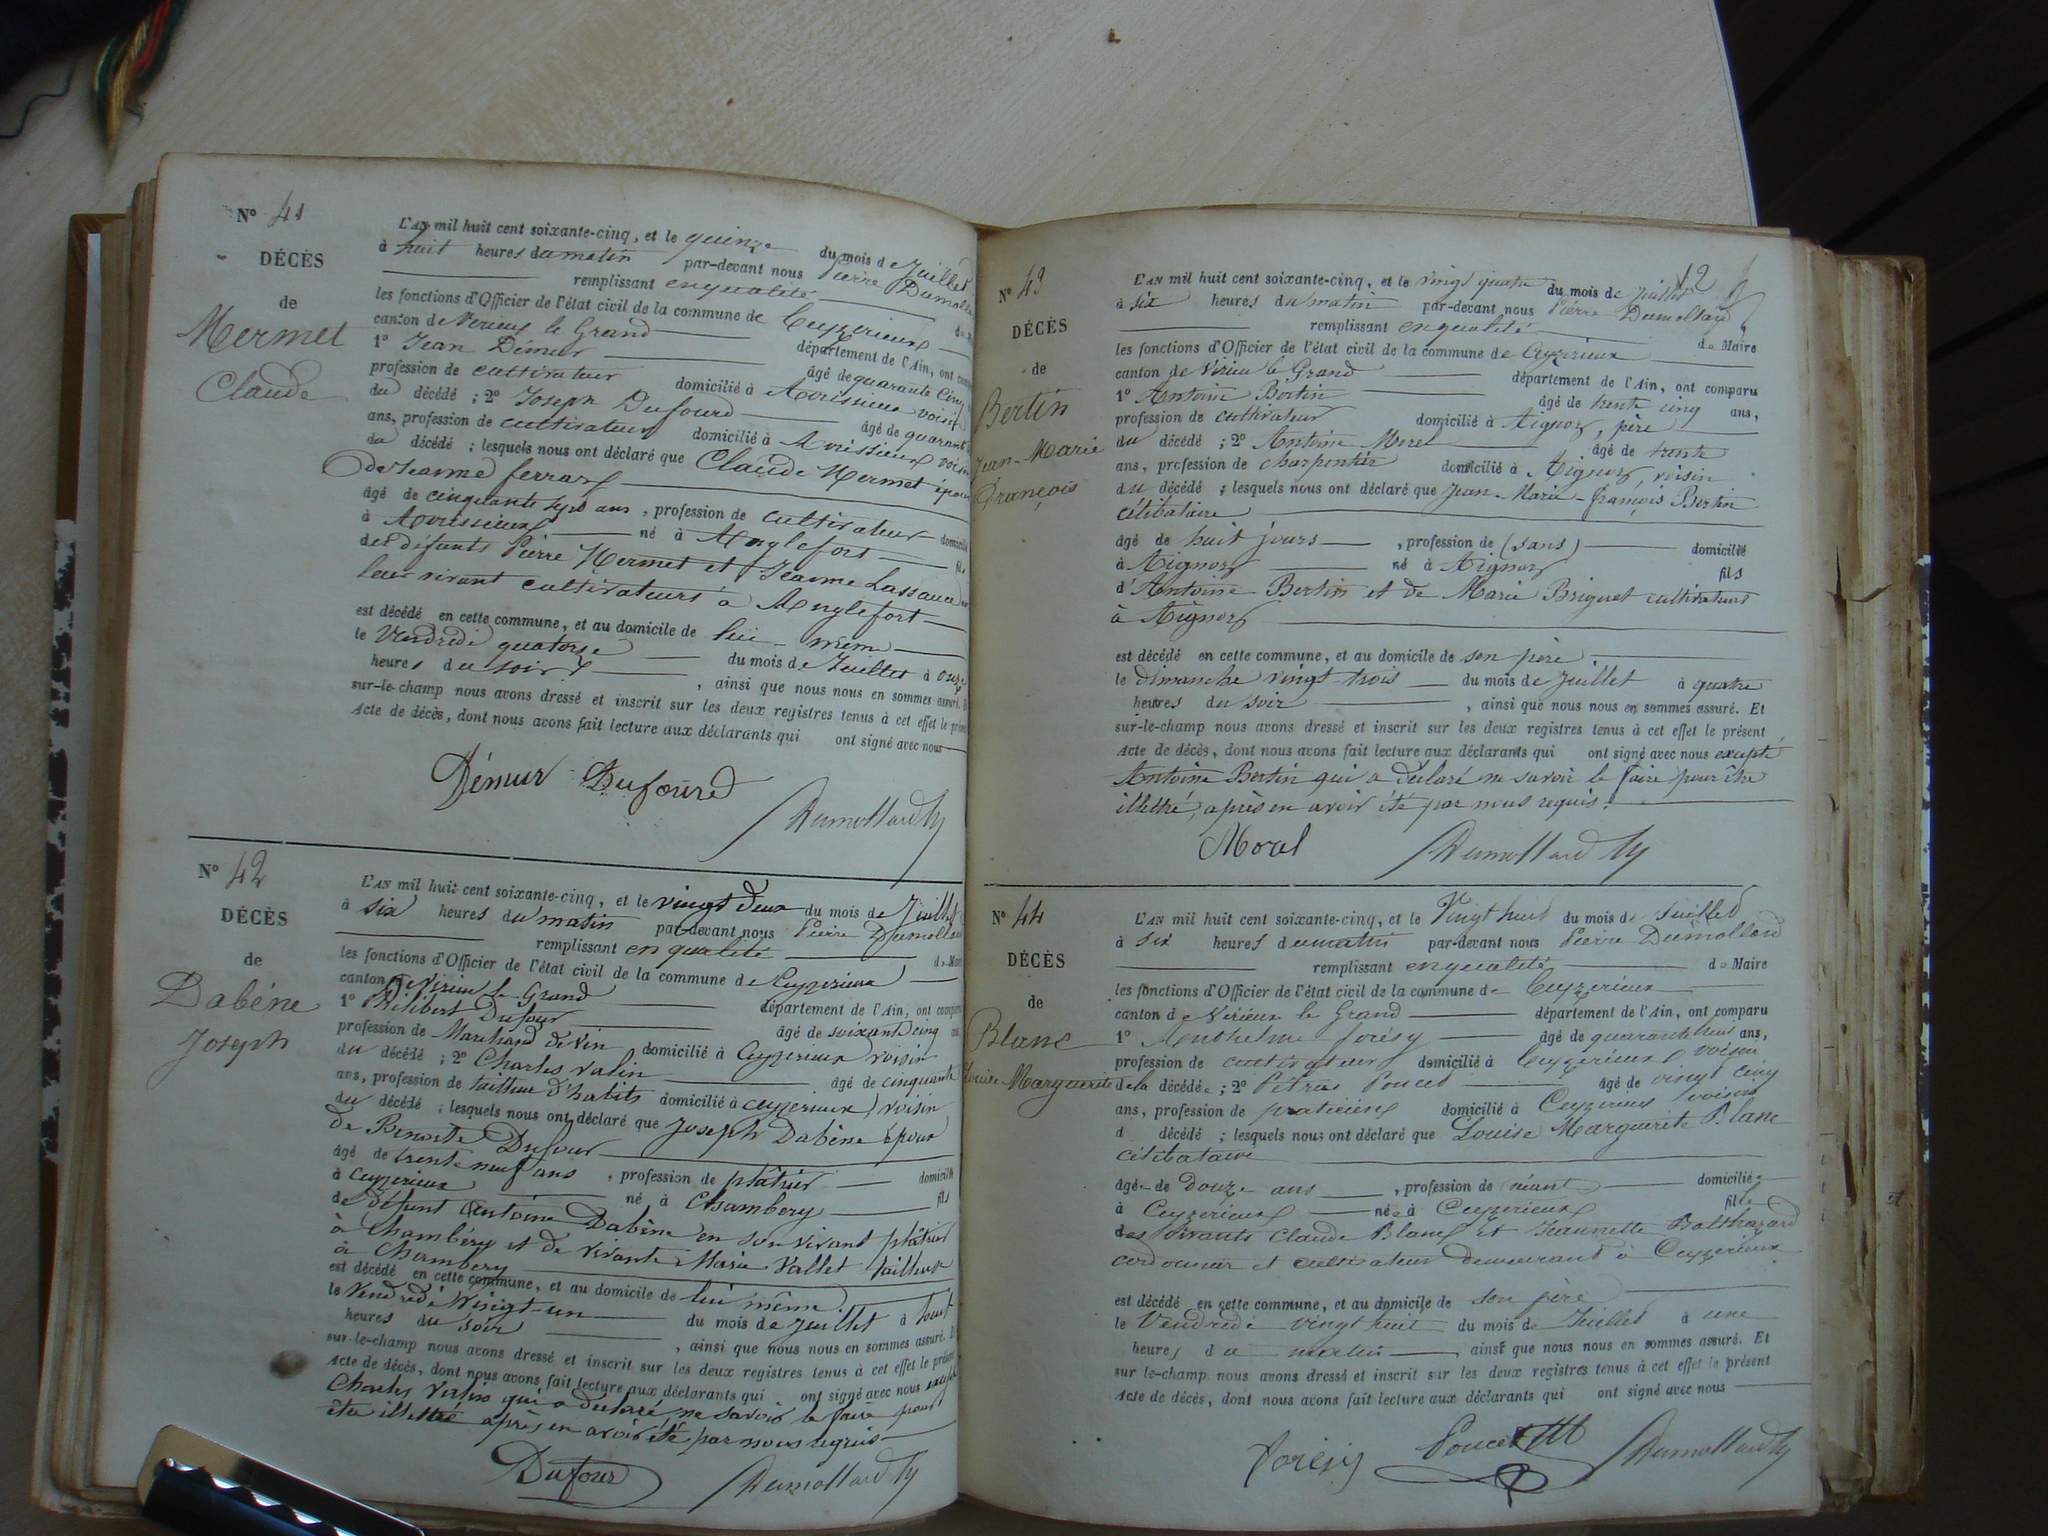 N° 41
DÉCÈS
de
Mermet
Claude
L'AN mil huit cent soixante-cinq, et le quinze du mois de Juillet
à huit heures du matin par-devant nous Pierre Dumollard
remplissant en qualité de Maire
les fonctions d'Officier de l'état civil de la commune de Ceyzerieux
canton de Virieux le Grand département de l'Ain, ont comparu
1° Jean Démeur âgé de quarante cinq
profession de cultivateur domicilié à Avrissieux voisin
du décédé ; 2° Joseph Dufourd âgé de quarante
ans, profession de cultivateur domicilié à Avrissieux voisin
du décédé ; lesquels nous ont déclaré que Claude Mermet époux
de Jeanne ferraz
âgé de cinquante sept ans, profession de cultivateur domicilié
à Avrissieux né à Anglefort fils
des défunts Pierre Mermet et Jeanne Lassauce en
leur vivant cultivateurs à Anglefort
est décédé en cette commune, et au domicile de lui-même
le Vendredi quatorze du mois de Juillet à onze
heures du soir, ainsi que nous nous en sommes assuré. Et
sur-le-champ nous avons dressé et inscrit sur les deux registres tenus à cet effet le présent
Acte de décès, dont nous avons fait lecture aux déclarants qui ont signé avec nous
Démeur Dufourd
Dumollard
N° 42
DÉCÈS
de
Dabène
Joseph
L'AN mil huit cent soixante-cinq, et le vingt deux du mois de Juillet
à six heures du matin par-devant nous Pierre Dumollard
remplissant en qualité de Maire
les fonctions d'Officier de l'état civil de la commune de Ceyzerieux
canton de Virieu le Grand département de l'Ain, ont comparu
1° Philibert Dufour âgé de soixante cinq ans
profession de Marchand de vin domicilié à Ceyzerieux voisin
du décédé ; 2° Charles Valin âgé de cinquante
ans, profession de tailleur d'habits domicilié à Ceyzerieux, voisin
du décédé ; lesquels nous ont déclaré que Joseph Dabène époux
de Benoite Dufour
âgé de trente neuf ans, profession de plâtrier domicilié
à Ceyzerieux né à Chambery fils
de défunt Antoine Dabène en son vivant plâtrier
à Chambéry et de vivante Marie Vallet tailleuse
à Chambery
est décédé en cette commune, et au domicile de lui même
le Vendredi Vingt-un du mois de Juillet à huit
heures du soir, ainsi que nous nous en sommes assuré. Et
sur-le-champ nous avons dressé et inscrit sur les deux registres tenus à cet effet le présent
Acte de décès, dont nous avons fait lecture aux déclarants qui ont signé avec nous excepté
Charles Valin qui a déclaré ne savoir le faire pour
être illettré après en avoir été par nous requis
Dufour Dumollard
12
N° 43
DÉCÈS
de
Bertin
Jean-Marie
François
L'AN mil huit cent soixante-cinq, et le vingt quatre du mois de Juillet
à six heures du matin par-devant nous Pierre Dumollard
remplissant en qualité de Maire
les fonctions d'Officier de l'état civil de la commune de Ceyzerieux
canton de Virieu le Grand département de l'Ain, ont comparu
1° Antoine Bertin âgé de trente cinq ans,
profession de cultivateur domicilié à Aignoz, père
du décédé ; 2° Antoine Morel âgé de trente
ans, profession de charpentier domicilié à Aignoz, voisin
du décédé ; lesquels nous ont déclaré que Jean-Marie-françois Bertin
célibataire
âgé de huit jours, profession de (sans) domicilié
à Aignoz né à Aignoz fils
d'Antoine Bertin et de Marie Briguet cultivateurs
à Aignoz
est décédé en cette commune, et au domicile de son père
le dimanche vingt trois du mois de Juillet à quatre
heures du soir, ainsi que nous nous en sommes assuré. Et
sur-le-champ nous avons dressé et inscrit sur les deux registres tenus à cet effet le présent
Acte de décès, dont nous avons fait lecture aux déclarants qui ont signé avec nous excepté
Antoine Bertin qui a déclaré ne savoir le faire pour être
illettré, après en avoir été par nous requis.
Morel Dumollard
N° 44
DÉCÈS
de
Blanc
Louise-Marguerite
L'AN mil huit cent soixante-cinq, et le Vingt huit du mois de Juillet
à six heures du matin par-devant nous Pierre Dumollard
remplissant en qualité de Maire
les fonctions d'Officier de l'état civil de la commune de Ceyzerieux
canton de Virieux le Grand département de l'Ain, ont comparu
1° Anthelme forésy âgé de quarante huit ans,
profession de cultivateur domicilié à Ceyzerieux voisin
de la décédée ; 2° Pétrus Poncet âgé de vingt cinq
ans, profession de praticien domicilié à Ceyzerieux voisin
d décédé ; lesquels nous ont déclaré que Louise Marguerite Blanc
célibataire
âgée de Douze ans, profession de néant domiciliée
à Ceyzerieux née à Ceyzerieux fille
des vivants Claude Blanc et Jeannette Balthazard
cordonnier et cultivateur demeurant à Ceyzerieux
est décédé en cette commune, et au domicile de son père
le Vendredi vingt huit du mois de Juillet à une
heures du matin, ainsi que nous nous en sommes assuré. Et
sur-le-champ nous avons dressé et inscrit sur les deux registres tenus à cet effet le présent
Acte de décès, dont nous avons fait lecture aux déclarants qui ont signé avec nous
Forésy Poncet Dumollard